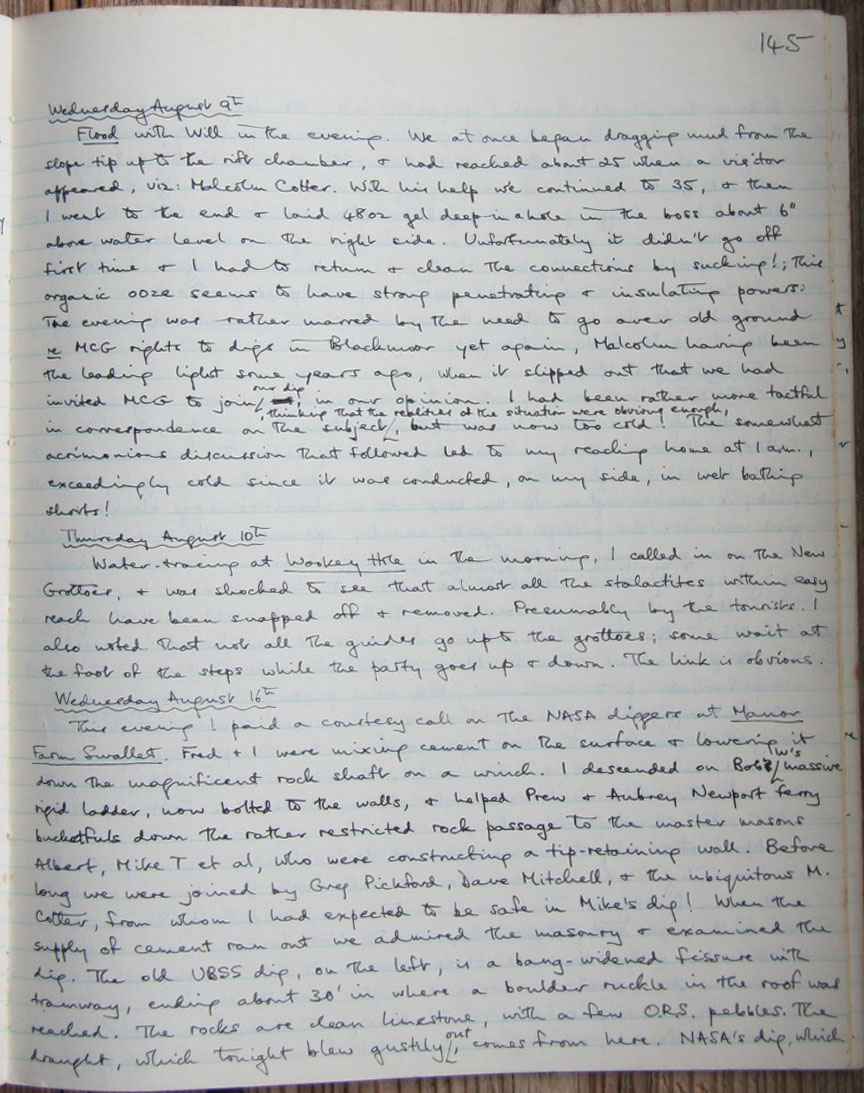 145
Wednesday August 9th
Flood with Will in the evening. We at once began dragging mud from the
slope tip up to the rift chamber, & had reached about 25 when a visitor
appeared, viz: Malcolm Cotter. With his help we continued to 35, & then
I went to the end & laid 48oz gel deep in a hole in the boss about 6"
above water level on the right side. Unfortunately it didn't go off
first time & I had to return & clean the connections by sucking!; This
organic ooze seems to have strong penetrating & insulating powers.
The evening was rather marred by the need to go over old ground
re MCG rights to digs in Blackmoor yet again, Malcolm having been
the leading light some years ago, when it slipped out that we had
our dip
invited MCG to join, in our opinion. I had been rather more tactful
, thinking that the realities of the situation were obvious enough,
in correspondence on the subject, but was now too cold! The somewhat
acrimonious discussion that followed led to my reaching home at 1 am.,
exceedingly cold since it was conducted, on my side, in wet bathing
shorts!
Thursday August 10th
Water-tracing at Wookey Hole in the morning, I called in on the New
Grottoes, & was shocked to see that almost all the stalactites within easy
reach have been snapped off & removed. Presumably by the tourists. I
also noted that not all the guides go up to the grottoes; some wait at
the foot of the steps while the party goes up & down. The link is obvious.
Wednesday August 16th
This evening I paid a courtesy call on the NASA diggers at Manor
Farm Swallet. Fred & I were mixing cement on the surface & lowering it
down the magnificent rock shaft on a winch. I descended on Bob W's massive
rigid ladder, now bolted to the walls, & helped Prew & Aubrey Newport ferry
bucketfuls down the rather restricted rock passage to the master masons
Albert, Mike T et al, who were constructing a tip-retaining wall. Before
long we were joined by Greg Pickford, Dave Mitchell, & the ubiquitous M.
Cotter, from whom I had expected to be safe in Mike's dig! When the
supply of cement ran out we admired the masonry & examined the
dig. The old UBSS dig, on the left, is a bang-widened fissure with
tramway, ending about 30' in where a boulder ruckle in the roof was
reached. The rocks are clean limestone, with a few O.R.S. pebbles. The
draught, which tonight blew gustily out, comes from here. NASA's dig, which